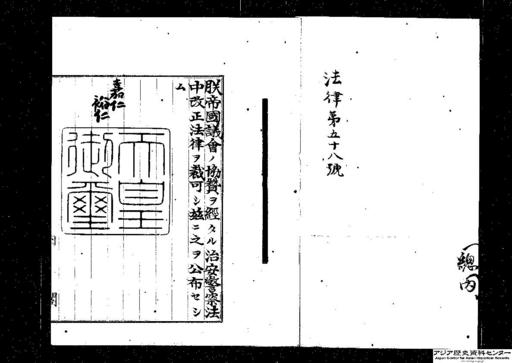 法律第五十八號
(總内
朕帝國議會ノ協賛ヲ經タル治安警察法
中改正法律ヲ裁可シ玆ニ之ヲ公布セシ
ム
嘉仁
裕仁
天皇
御璽
内 閣
アジア歴史資料センター
Japan Center for Asian Historical Records